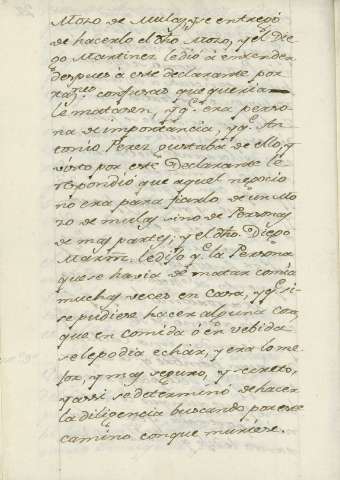 Mozo de Mulas, y se entregó
de hacerlo el dho. Mozo, y el Die
go Martinez le dió á entender
despues á este declarante por
razones confusas que querian
le matasen, y qe. era perso
na de importancia, y qe. An
tonio Perez gustaba de ello, y
visto por este Declarante le
respondió que aquel negocio
no era para fiarlo de un Mo
zo de mulas sino de Personas
de mas partes; y el dho. Diego
Martin. le dijo qe. la Persona
que se havia de matar comia
muchas veces en casa, y qe. si
se pudiese hacer alguna cosa,
que en comida ó en vebida
se le podia echar, y era lo me
jor, y mas seguro, y secreto,
y assi se determinó de hacer
la diligencia buscando por este
camino con que muriese.